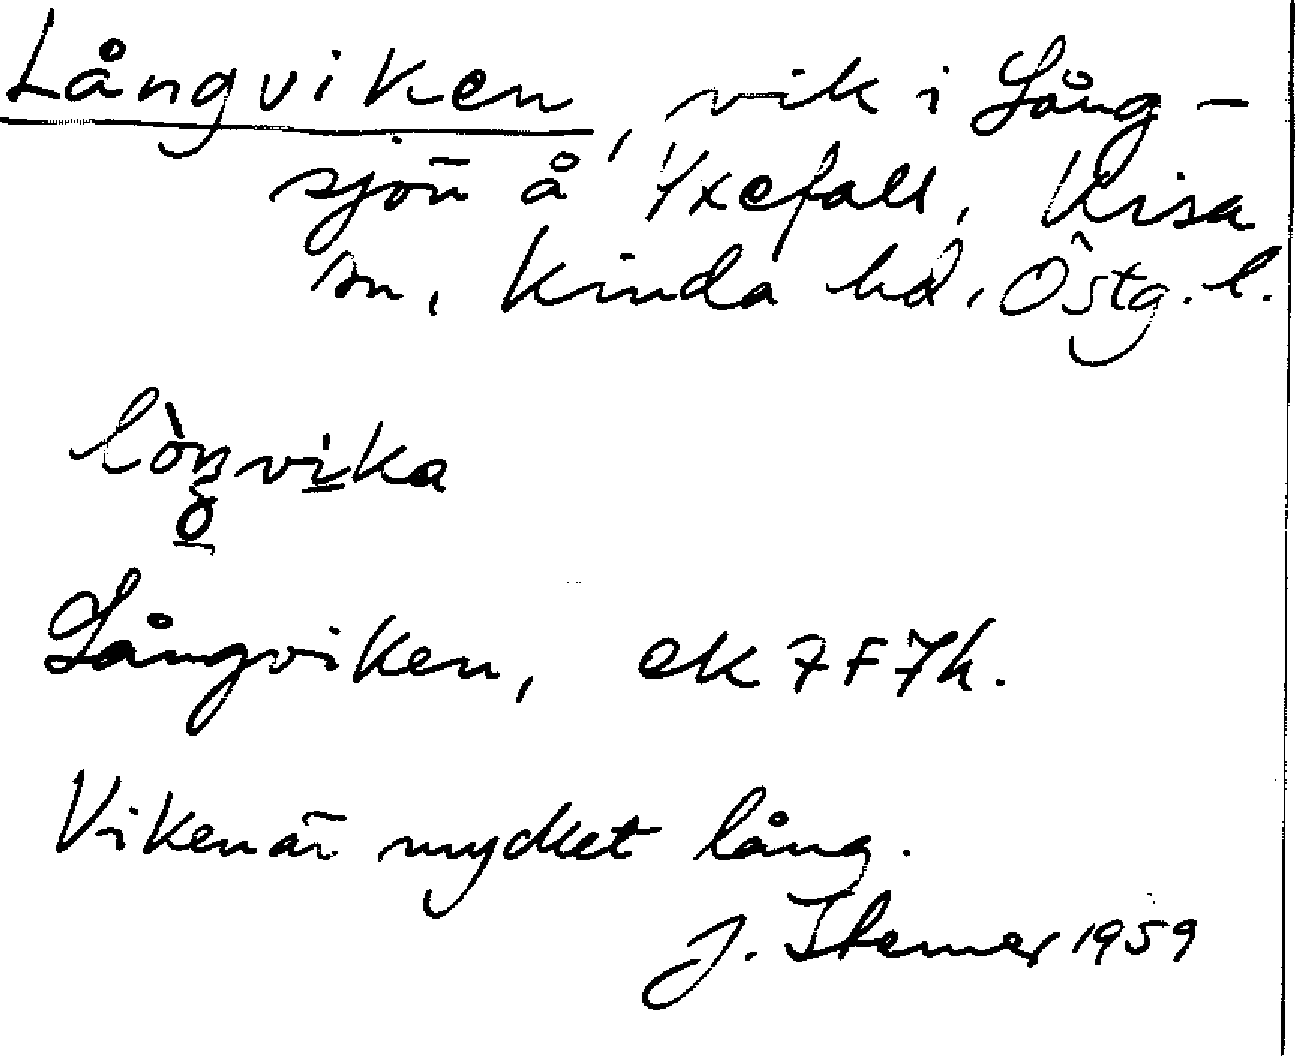 Långviken, vik i Lång-
sjön å Yxefall, Kisa
sn, Kinda hd, Östg. l.
Långviken, ek 7F7h.
Viken är mycket lång.
J. 1959